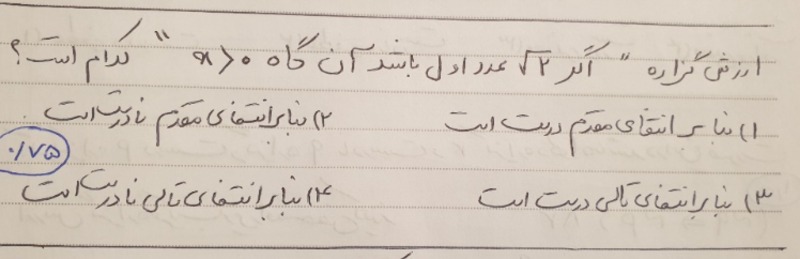 ارزش گزاره " اگر √۲ عدد اول باشد آن گاه x>۰ " کدام است؟
۱) بنابر انتفای مقدم درست است ۲) بنابر انتفای مقدم نادرست است
۰/۷۵
۳) بنابر انتفای تالی درست است ۴) بنابر انتفای تالی نادرست است